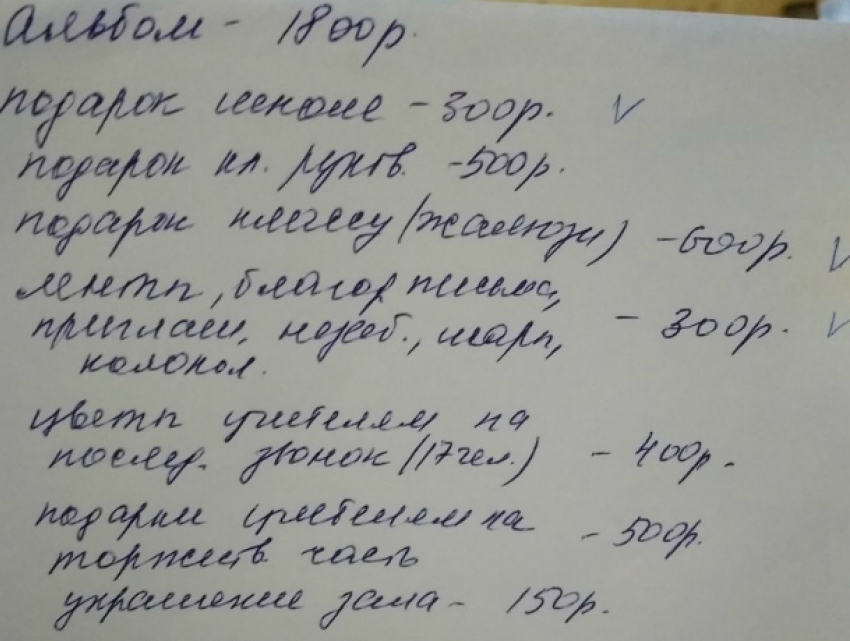 Альбом - 1800р.
подарок школе - 300р. V
подарок кл. руков. - 500р.
подарок классу (жалюзи) - 600р. V
ленты, благод. письма,
приглаш., шары, - 300р. V
колокол.
цветы учителям на
послед. звонок (17чел.) - 400р.
подарки учителям на - 500р.
торжеств. часть
украшение зала - 150р.